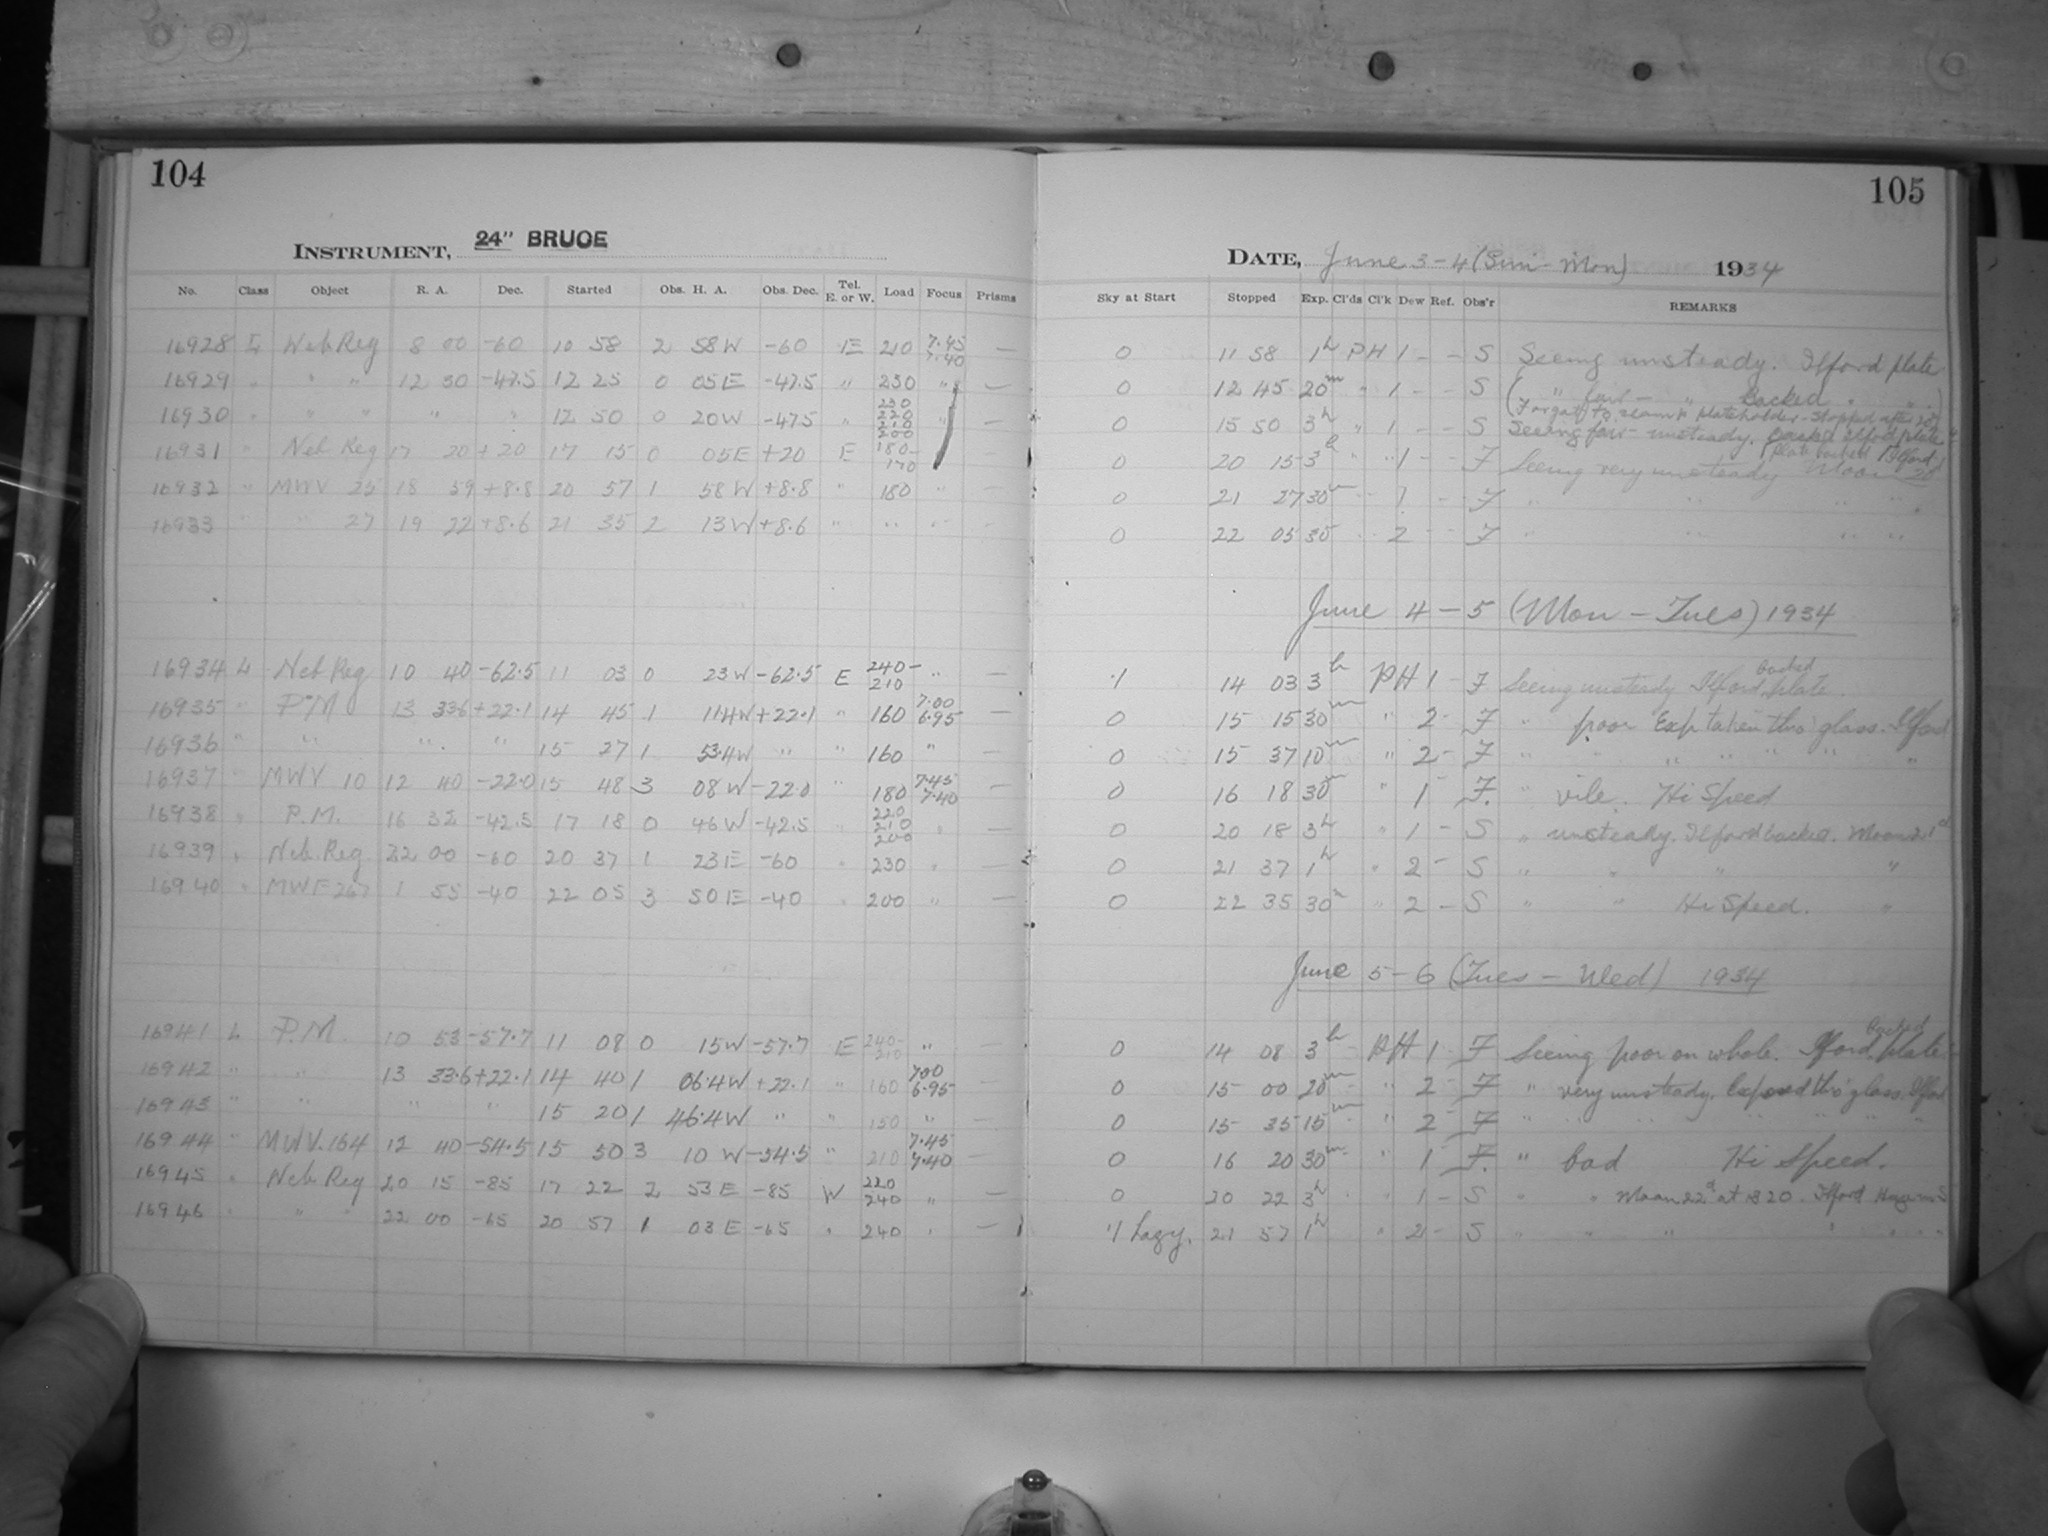 104
INSTRUMENT, 24" BRUCE
No. Class Object R. A. Dec. Started Obs. H. A. Obs. Dec. Tel. E. or W. Load Focus Prisms
16928 L Neb Reg 8 00 -60 10 58 2 58 W -60 E 210 7.45 7.40 —
16929 " " " 12 30 -47.5 12 25 0 05 E -47.5 " 230 " —
16930 " " " " " 12 50 0 20 W -47.5 " 230 220 210 200 " —
16931 " Neb Reg 17 20 +20 17 15 0 05 E +20 E 180- 170 —
16932 " MWV 25 18 59 +8.8 20 57 1 58 W +8.8 " 180 " —
16933 " " 27 19 22 +8.6 21 35 2 13 W +8.6 " " " —
16934 L Neb Reg 10 40 -62.5 11 03 0 23 W -62.5 E 240- 210 " —
16935 " P.M 13 33.6 +22.1 14 45 1 11.4 W +22.1 " 160 7.00 6.95 —
16936 " " " " 15 27 1 53.4 W " " 160 " —
16937 " MWV 10 12 40 -22.0 15 48 3 08 W -22.0 " 180 7.45 7.40
16938 " P.M. 16 32 -42.5 17 18 0 46 W -42.5 " 220 210 200 " —
16939 " Neb. Reg 22 00 -60 20 37 1 23 E -60 " 230 " —
16940 " MWF 267 1 55 -40 22 05 3 50 E -40 " 200 " —
16941 L P.M. 10 53 -57.7 11 08 0 15 W -57.7 E 240- 210 " —
16942 " " 13 33.6 +22.1 14 40 1 06.4 W +22.1 " 160 7.00 6.95 —
16943 " " " " 15 20 1 46.4 W " " 150 " —
16944 " MWV. 164 12 40 -54.5 15 50 3 10 W -54.5 " 210 7.45 7.40 —
16945 " Neb Reg 20 15 -85 17 22 2 53 E -85 W 220 240 " —
16946 " " " 22 00 -65 20 57 1 03 E -65 " 240 " —
105
DATE, June 3-4 (Sun - Mon) 1934
Sky at Start Stopped Exp. Cl'ds Cl'k Dew Ref. Obs'r REMARKS
0 11 58 1h PH 1 - - S Seeing unsteady. Ilford plate
0 12 45 20m " 1 - - S ( " fair - " backed " " )
Forgot to clamp plateholder - stopped after 20m
0 15 50 3h " 1 - - S Seeing fair - unsteady. Backed Ilford plate
(Plate backed Ilford)
0 20 15 3h " " 1 - - F Seeing very unsteady Moon 20d
0 21 27 30m 1 - - F " " " "
0 22 05 30 2 - - F " " " "
June 4 - 5 (Mon - Tues) 1934
.1 14 03 3h PH 1 - F Seeing unsteady Ilford backed plate.
0 15 15 30m " 2 - F " poor Exp taken thro' glass. Ilford
0 15 37 10m " 2 - F " " " " " " "
0 16 18 30m " 1 - F. " vile. Hi Speed
0 20 18 3h " 1 - S " unsteady. Ilford backed. Moon 21d
0 21 37 1h " 2 - S " " " "
0 22 35 30m " 2 - S " " Hi Speed. "
June 5 - 6 (Tues - Wed) 1934
0 14 08 3h - PH 1 - F Seeing poor on whole. Ilford backed plate
0 15 00 20m - " 2 - F " very unsteady. Exposed thro' glass. Ilford
0 15 35 15m - " 2 - F " " " " " "
0 16 20 30m - " 1 - F. " bad Hi Speed.
0 20 22 3h " 1 - S " " Moon 22d at 1820. Ilford Haze in S
.1 hazy. 21 57 1h " 2 - S " " " " " " "